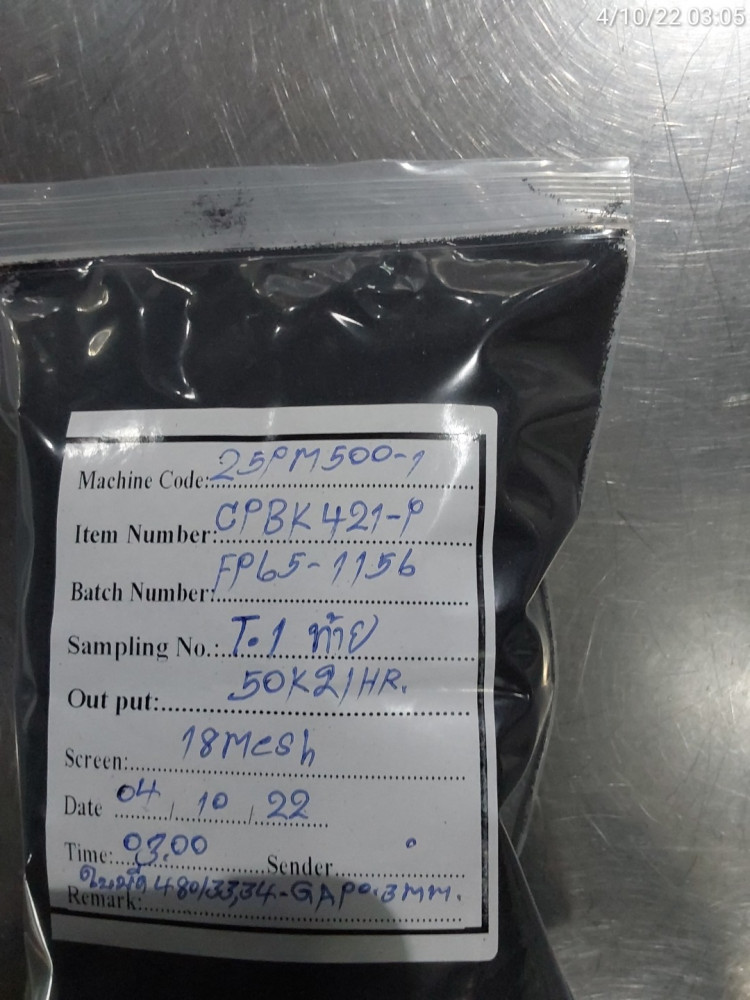 4/10/22 03:05
Machine Code: 25PM500-1
Item Number: CPBK421-P
Batch Number: FP65-1156
Sampling No.: T.1 ท้าย
Out put: 50Kg/HR.
Screen: 18Mesh
Date 04 / 10 / 22
Time: 03.00 Sender
Remark: ใบมีด 480/33,34-GAP0.3mm.